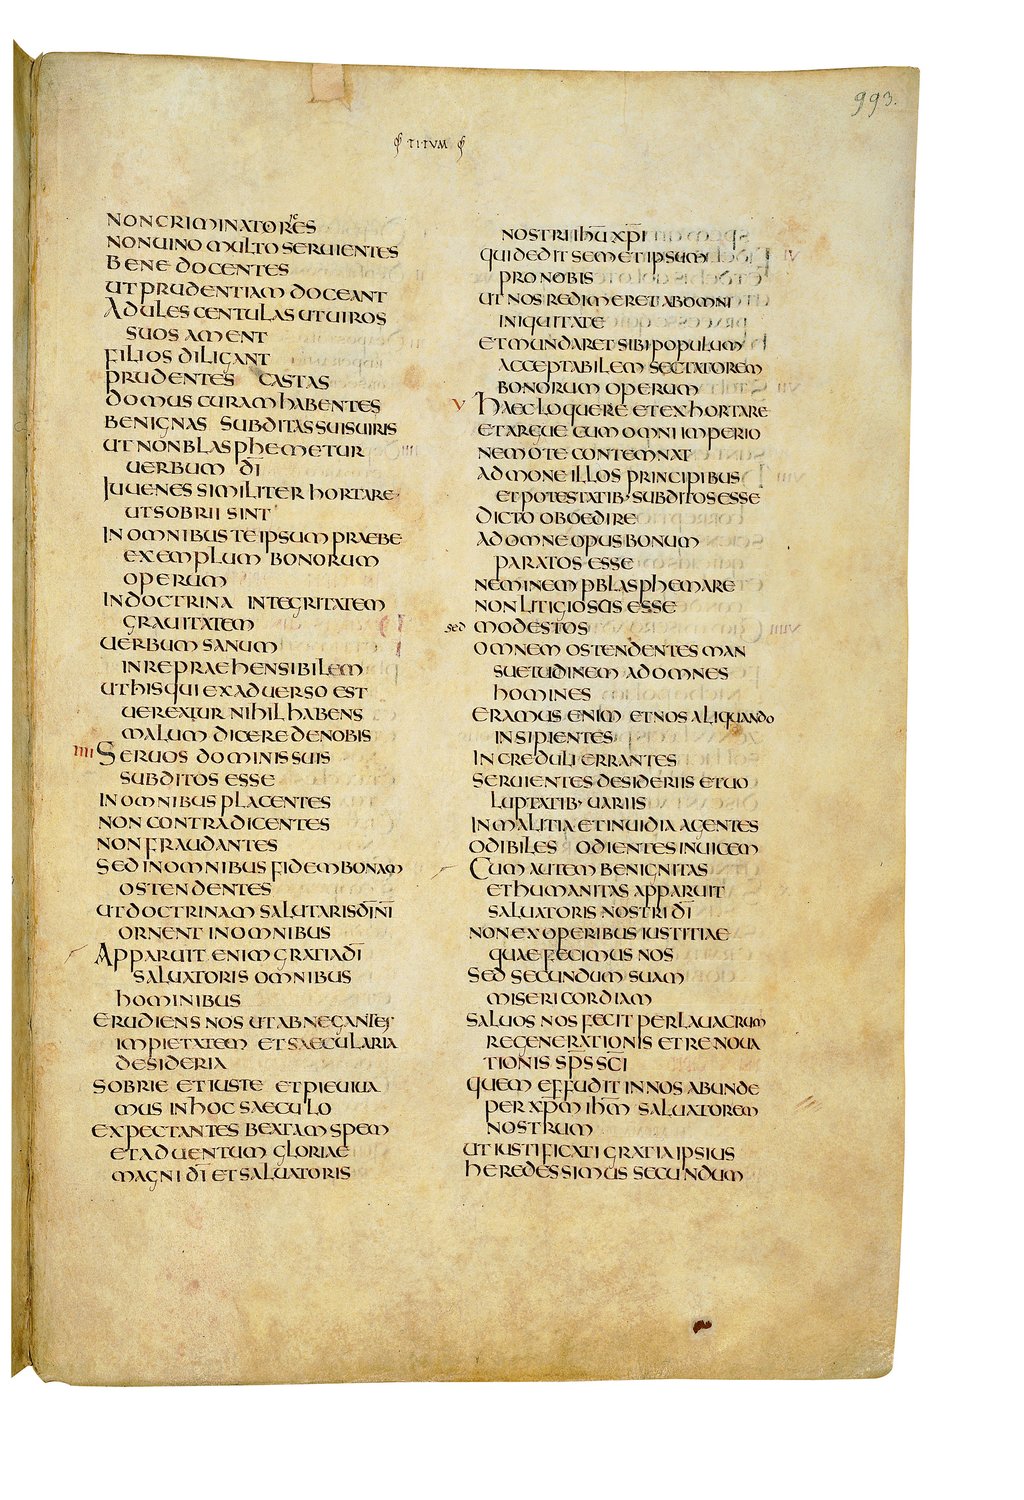 993.
TITUM
NON CRIMINATORES
NON UINO MULTO SERUIENTES
BENE DOCENTES
UT PRUDENTIAM DOCEANT
ADULESCENTULAS UT UIROS
SUOS AMENT
FILIOS DILIGANT
PRUDENTES CASTAS
DOMUS CURAM HABENTES
BENIGNAS SUBDITAS SUIS UIRIS
UT NON BLASPHEMETUR
UERBUM DI
IUUENES SIMILITER HORTARE
UT SOBRII SINT
IN OMNIBUS TE IPSUM PRAEBE
EXEMPLUM BONORUM
OPERUM
IN DOCTRINA INTEGRITATEM
GRAUITATEM
UERBUM SANUM
INREPRAEHENSIBILEM
UT HIS QUI EX ADUERSO EST
UEREATUR NIHIL HABENS
MALUM DICERE DE NOBIS
IIII SERUOS DOMINIS SUIS
SUBDITOS ESSE
IN OMNIBUS PLACENTES
NON CONTRADICENTES
NON FRAUDANTES
SED IN OMNIBUS FIDEM BONAM
OSTENDENTES
UT DOCTRINAM SALUTARIS DI NI
ORNENT IN OMNIBUS
APPARUIT ENIM GRATIA DI
SALUATORIS OMNIBUS
HOMINIBUS
ERUDIENS NOS UT ABNEGANTES
IMPIETATEM ET SAECULARIA
DESIDERIA
SOBRIE ET IUSTE ET PIE UIUA
MUS IN HOC SAECULO
EXPECTANTES BEATAM SPEM
ET ADUENTUM GLORIAE
MAGNI DI ET SALUATORIS
NOSTRI IHU XPI
QUI DEDIT SEMET IPSUM
PRO NOBIS
UT NOS REDIMERET AB OMNI
INIQUITATE
ET MUNDARET SIBI POPULUM
ACCEPTABILEM SECTATOREM
BONORUM OPERUM
V HAEC LOQUERE ET EXHORTARE
ET ARGUE CUM OMNI IMPERIO
NEMO TE CONTEMNAT
ADMONE ILLOS PRINCIPIBUS
ET POTESTATIB· SUBDITOS ESSE
DICTO OBOEDIRE
AD OMNE OPUS BONUM
PARATOS ESSE
NEMINEM BLASPHEMARE
NON LITIGIOSOS ESSE
sed MODESTOS
OMNEM OSTENDENTES MAN
SUETUDINEM AD OMNES
HOMINES
ERAMUS ENIM ET NOS ALIQUANDO
INSIPIENTES
INCREDULI ERRANTES
SERUIENTES DESIDERIIS ET UO
LUPTATIB· UARIIS
IN MALITIA ET INUIDIA AGENTES
ODIBILES ODIENTES INUICEM
CUM AUTEM BENIGNITAS
ET HUMANITAS APPARUIT
SALUATORIS NOSTRI DI
NON EX OPERIBUS IUSTITIAE
QUAE FECIMUS NOS
SED SECUNDUM SUAM
MISERICORDIAM
SALUOS NOS FECIT PER LAUACRUM
REGENERATIONIS ET RENOUA
TIONIS SPS SCI
QUEM EFFUDIT IN NOS ABUNDE
PER XPM IHM SALUATOREM
NOSTRUM
UT IUSTIFICATI GRATIA IPSIUS
HEREDES SIMUS SECUNDUM